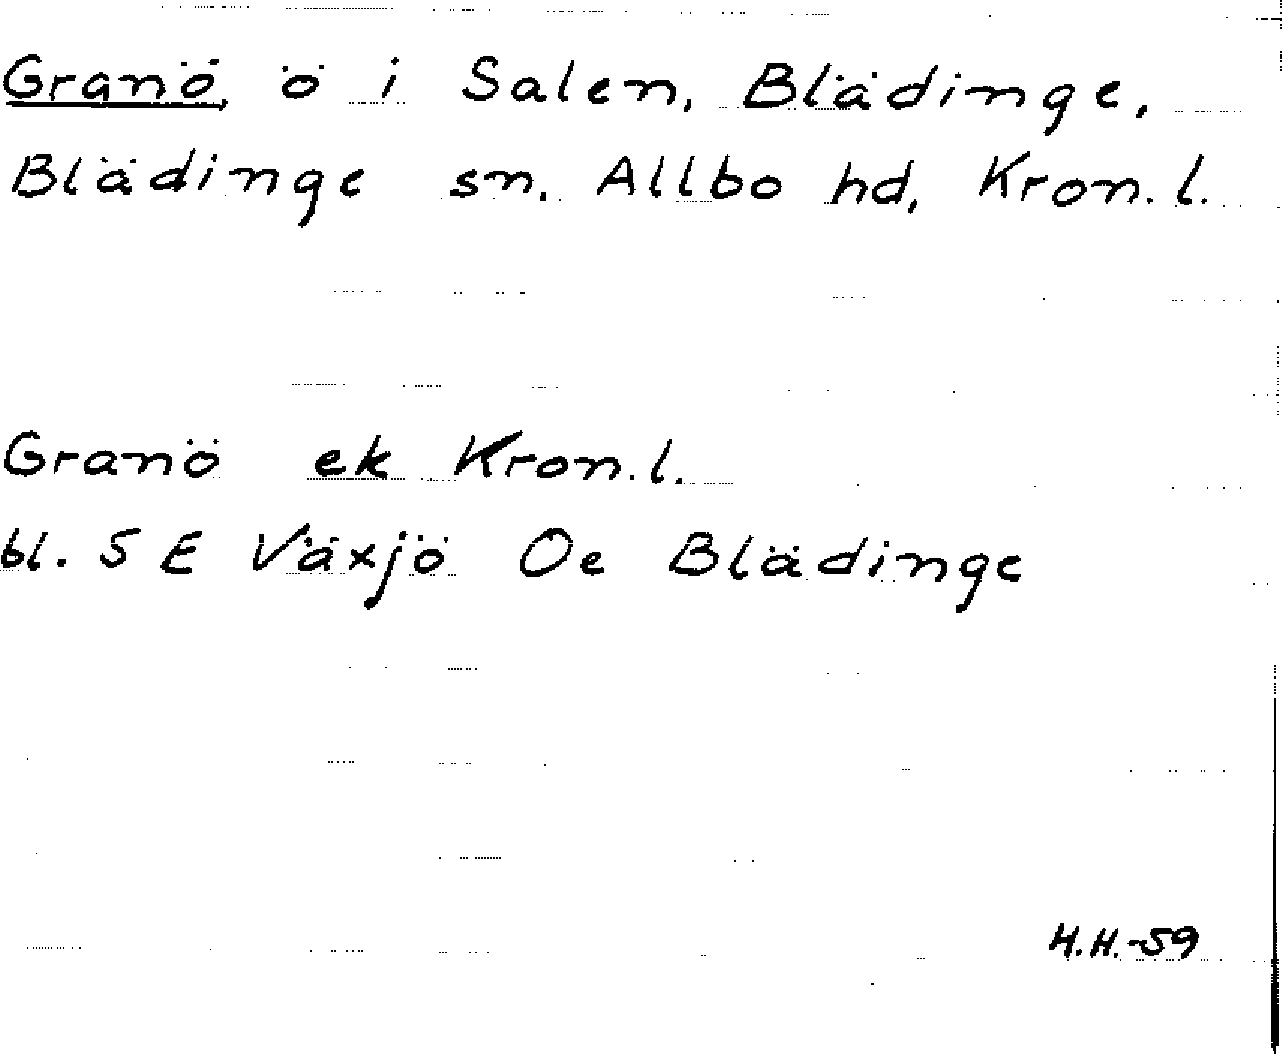 Granö, ö i Salen, Blädinge,
Blädinge sn. Allbo hd, Kron. l.
Granö ek Kron. l.
bl. 5 E Växjö Oe Blädinge
H.H.-59